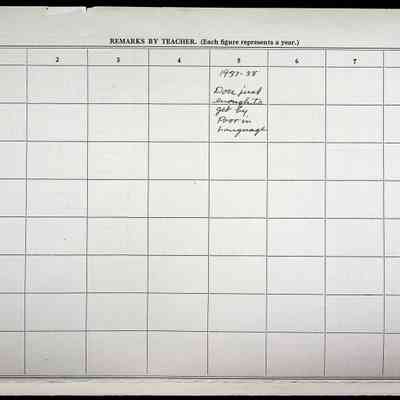 REMARKS BY TEACHER. (Each figure represents a year.)
2 3 4 5 6 7
1937-38
Does just
enough to
get by
Poor in
Language